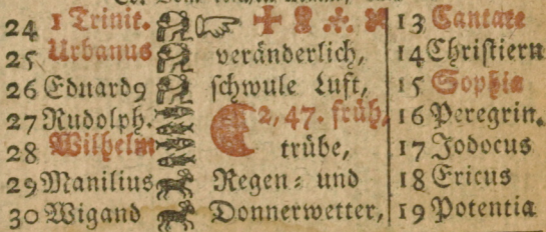 24 1 Trinit. 13 Cantate
25 Urbanus veränderlich, 14 Christiern
26 Eduard9 schwule Luft, 15 Sophia
27 Rudolph. 2, 47. früh, 16 Peregrin.
28 Wilhelm trübe, 17 Jodocus
29 Manilius Regen- und 18 Ericus
30 Wigand Donnerwetter, 19 Potentia